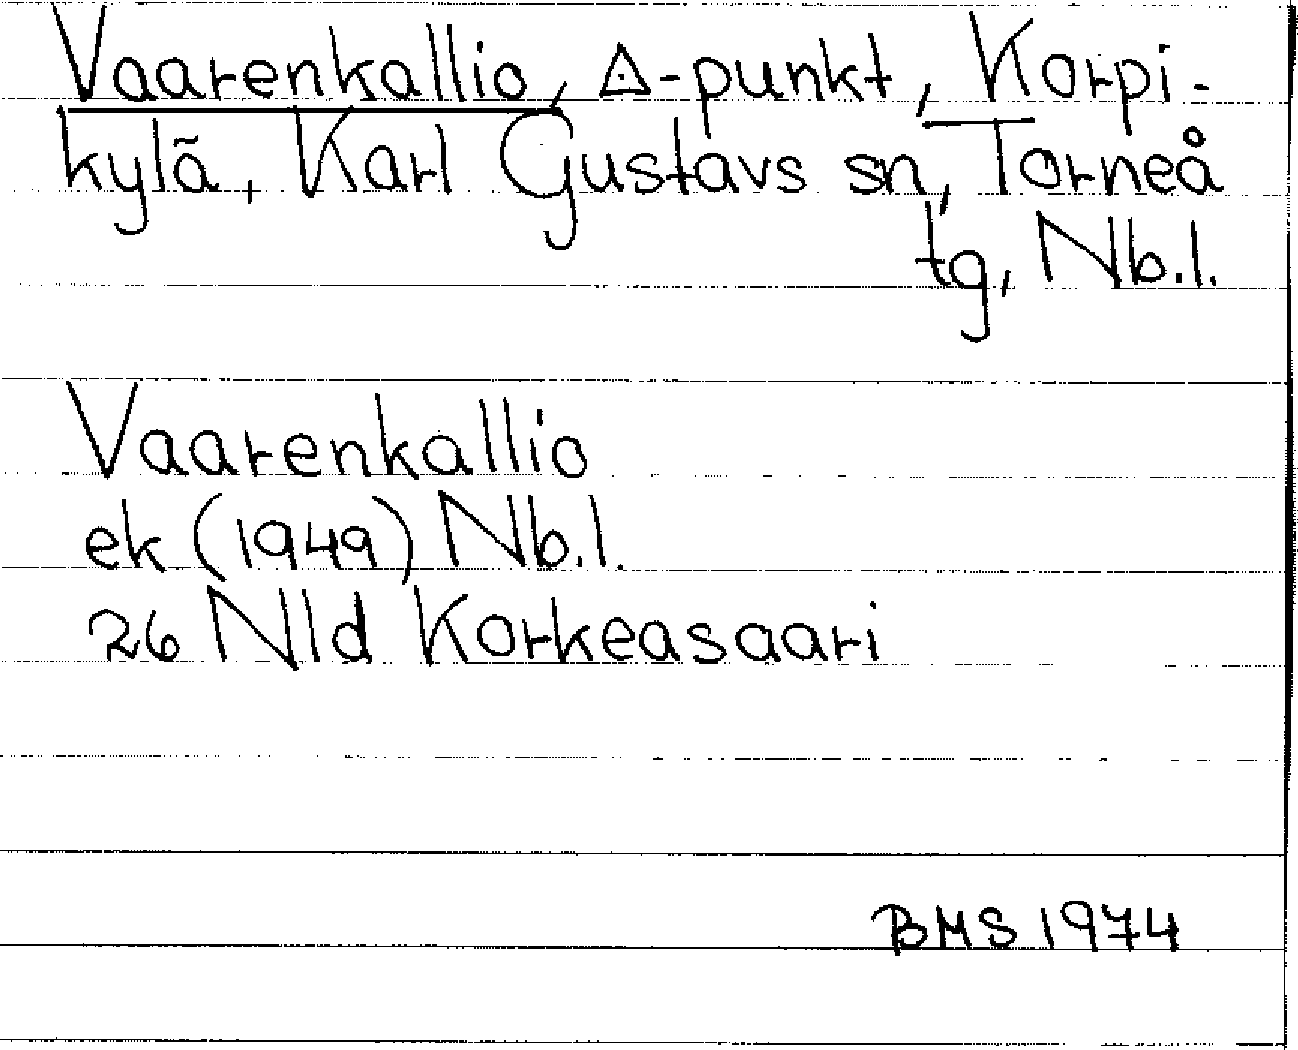 Vaarenkallio, △-punkt, Korpi-
kylä, Karl Gustavs sn, Torneå
tg, Nb.l.
Vaarenkallio
ek (1949) Nb.l.
26 Nld Korkeasaari
BMS 1974